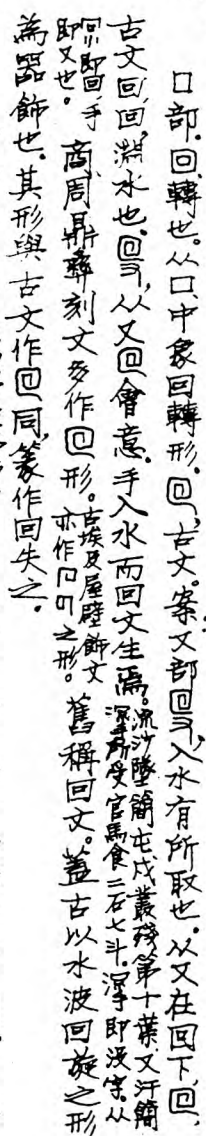 囗部．回，轉也。从囗，中象回轉形．𠚃，古文。案又部𠬸，入水有所取也。从又在回下，回，
古文回，回，淵水也．𠬸，从又回會意．手入水而回文生焉。流沙墜簡屯戍叢殘第十葉，又汗簡
即回，手即又也。商周鼎彝刻文多作回形。古埃及屋壁飾文亦作之形。舊稱回文。蓋古以水波回旋之形
為器飾也．其形與古文作回同，篆作回失之．